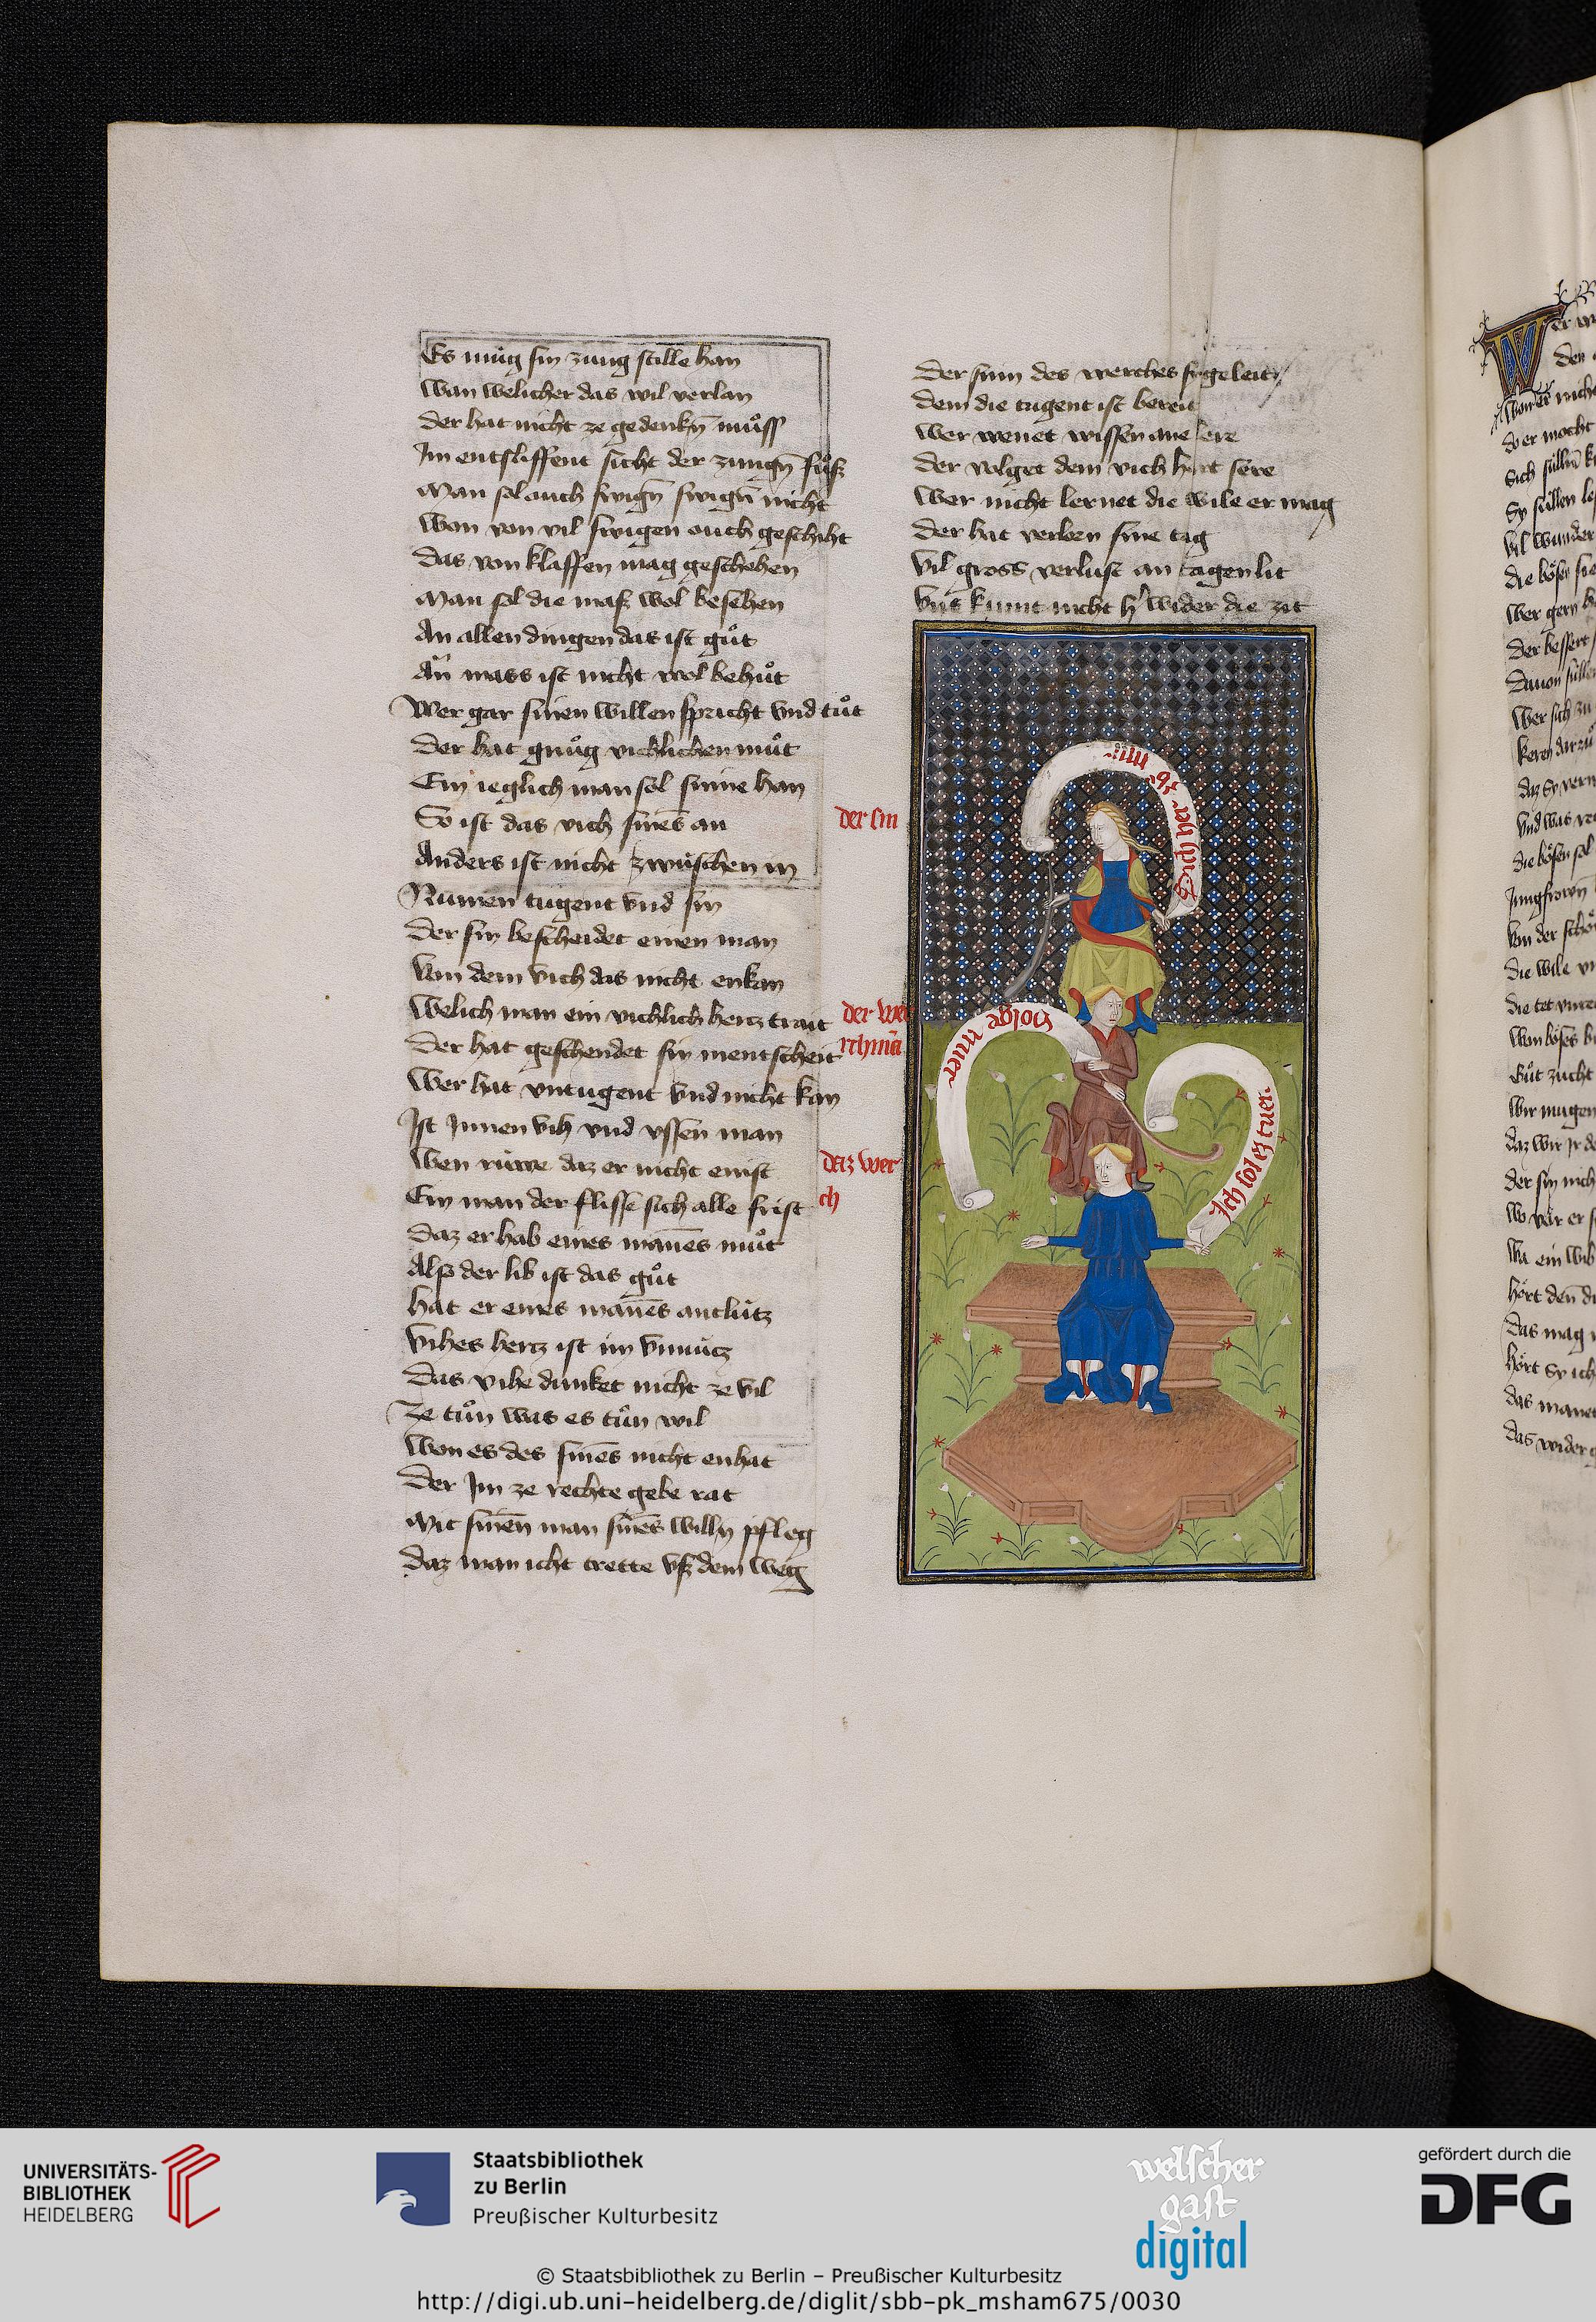 Es mùg sin zung stille han
Wan welicher das wil verlan
der hat nicht ze gedenkn̄ mu̇ss
Im entsliffent sicht der zungn̄ fu̇sz
Man sol ouch swign̄ swign̄ nicht
Won von vil swigen ouch geschiht
das von klaffen mag geschehen
Man sol die masz wol besehen
An allen dingen das ist gůt
An̄ mass ist nicht wol behůt
Wer gar sinen willen spricht vnd tůt
Der hat gnůg vichlichen můt
Ein ieglich man sol sinne han
So ist das vich sines an
Anders ist nicht zwùschen in
Nùwen tugent vnd sin
Der sin bescheidet einen man
Von dem vich das nicht enkan
Welich man ein vichlich hertz trait
Der hat geschendet sin mentscheit
Wer hat vntugent vnd nicht kan
Ist Innen vih vnd vssen man
Wen rùwe daz er nicht enist
Ein man der flisse sich alle frist
daz er hab eines man̄es můt
Alsz der lib ist das gůt
hat er eines man̄es antlùtz
Vihes hertz ist im vnnùtz
Das vihe dunket nicht ze vil
Ze tůn was es tůn wil
Won es des sin̄es nicht enhat
Der Im ze rechte gebe rat
Mit sin̄en man sin̄es willn̄ pfleg
Daz man icht trette vsz dem weg
der sin
der wer
ichman̄
daz wer
ch
der sinn des werches
dem die tugent ist bereit
Wer wenet wissen ane lere
der volget dem vich hart sere
Wer nicht lernet die wile er mag
der hat verlorn sine tag
Vil gross verlust an tagen lit
Vnd kumt nicht h' wider die zit
Sich her ze mir
Volge mier
Ich sol ez tuer
UNIVERSITÄTS-
BIBLIOTHEK
HEIDELBERG
Staatsbibliothek
zu Berlin
Preußischer Kulturbesitz
welscher
gast
digital
gefördert durch die
DFG
© Staatsbibliothek zu Berlin – Preußischer Kulturbesitz
http://digi.ub.uni-heidelberg.de/diglit/sbb-pk_msham675/0030